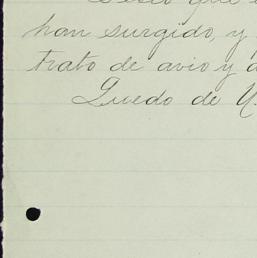 Deseo que
han surgido, y
trato de avio y
Quedo de